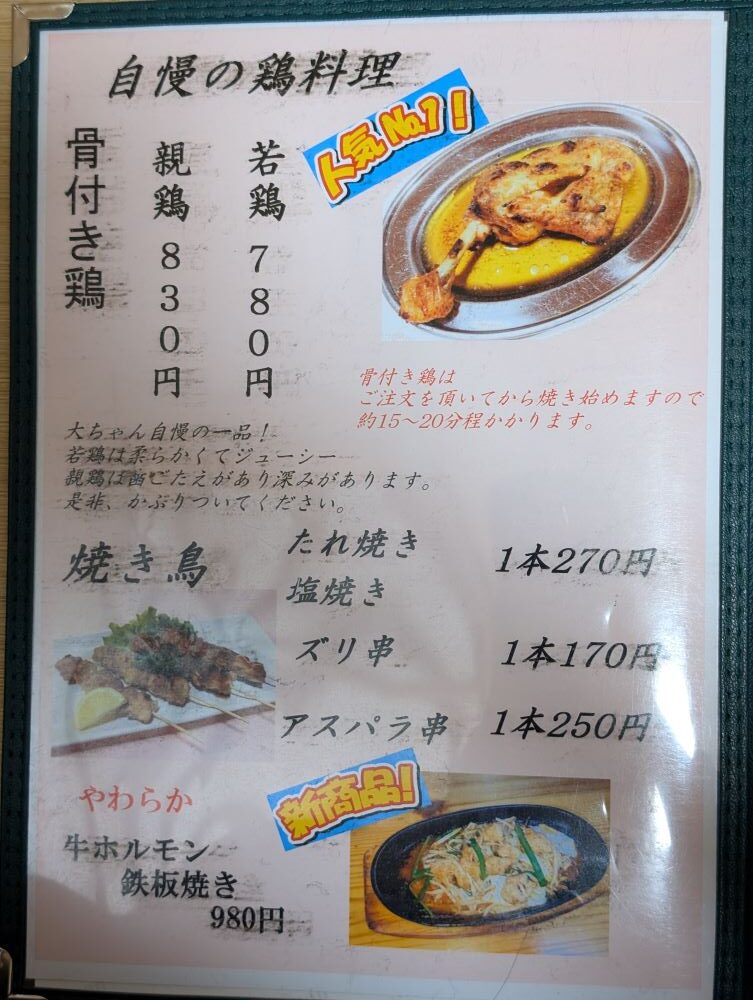 自慢の鶏料理
人気No.1!
骨付き鶏
若鶏 780円
親鶏 830円
骨付き鶏は
ご注文を頂いてから焼き始めますので
約15～20分程かかります。
大ちゃん自慢の一品!
若鶏は柔らかくてジューシー
親鶏は歯ごたえがあり深みがあります。
是非、かぶりついてください。
焼き鳥
たれ焼き
塩焼き
1本270円
ズリ串 1本170円
アスパラ串 1本250円
新商品!
やわらか
牛ホルモン
鉄板焼き
980円